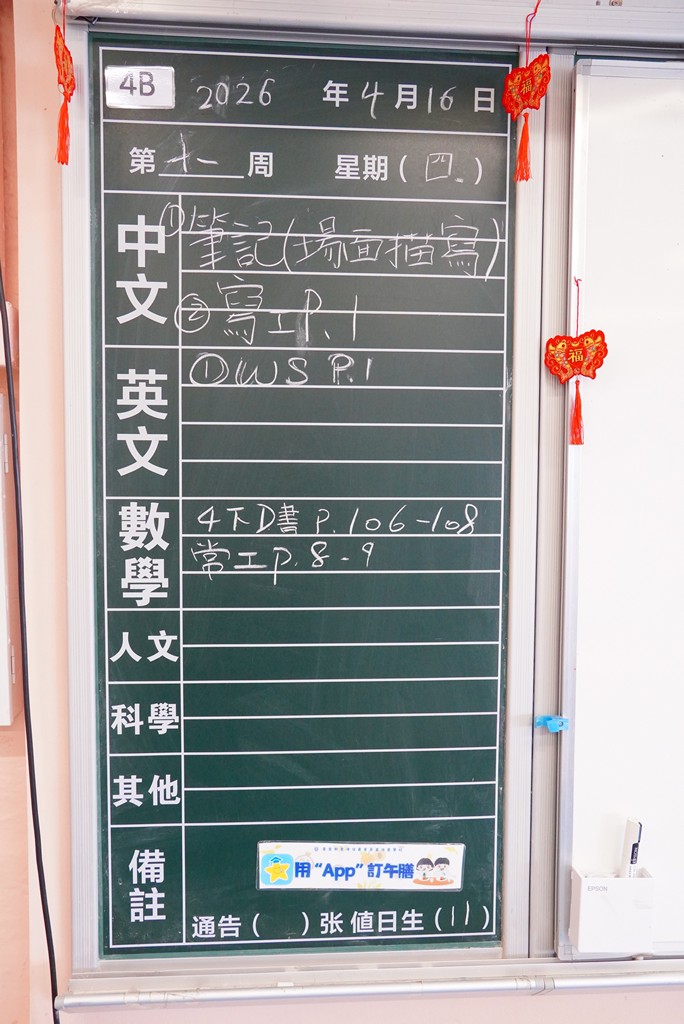 4B 2026 年 4 月 16 日
第 十一 周 星期 ( 四 )
中文
① 筆記(場面描寫)
② 寫工P.1
英文
① WS P.1
數學
4下D書 P.106-108
常工p.8-9
人文
科學
其他
備註
用 “App” 訂午膳
通告 ( ) 张 值日生 ( 11 )
福
福
EPSON